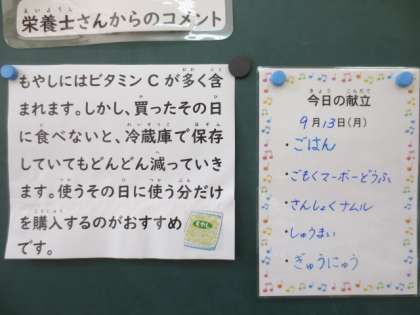 栄養士さんからのコメント
もやしにはビタミンCが多く含
まれます。しかし、買ったその日
に食べないと、冷蔵庫で保存
していてもどんどん減っていき
ます。使うその日に使う分だけ
を購入するのがおすすめ
です。
もやし
今日の献立
9月13日(月)
・ごはん
・ごもくマーボーどうふ
・さんしょくナムル
・しゅうまい
・ぎゅうにゅう